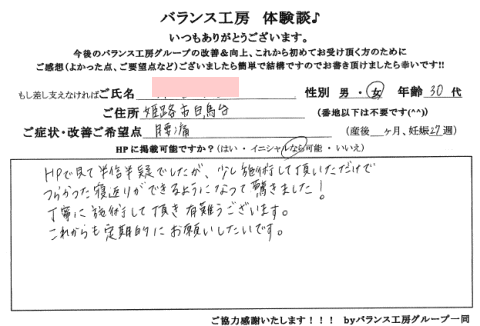 バランス工房 体験談♪
いつもありがとうございます。
今後のバランス工房グループの改善&向上、これから初めてお受け頂く方のために
ご感想(よかった点、ご要望点など)ございましたら簡単で結構ですのでお書き頂けましたら幸いです!!
もし差し支えなければご氏名 性別 男・女 年齢 30 代
ご住所 姫路市白鳥台 (番地以下は不要です(^^))
ご症状・改善ご希望点 腰痛 (産後 ヶ月、妊娠27週)
HPに掲載可能ですか?(はい・イニシャルなら可能・いいえ)
HPで見て半信半疑でしたが、少し施術して頂いただけで
つらかった寝返りができるようになって驚きました!
丁寧に施術して頂き有難うございます。
これからも定期的にお願いしたいです。
ご協力感謝いたします!!! byバランス工房グループ一同